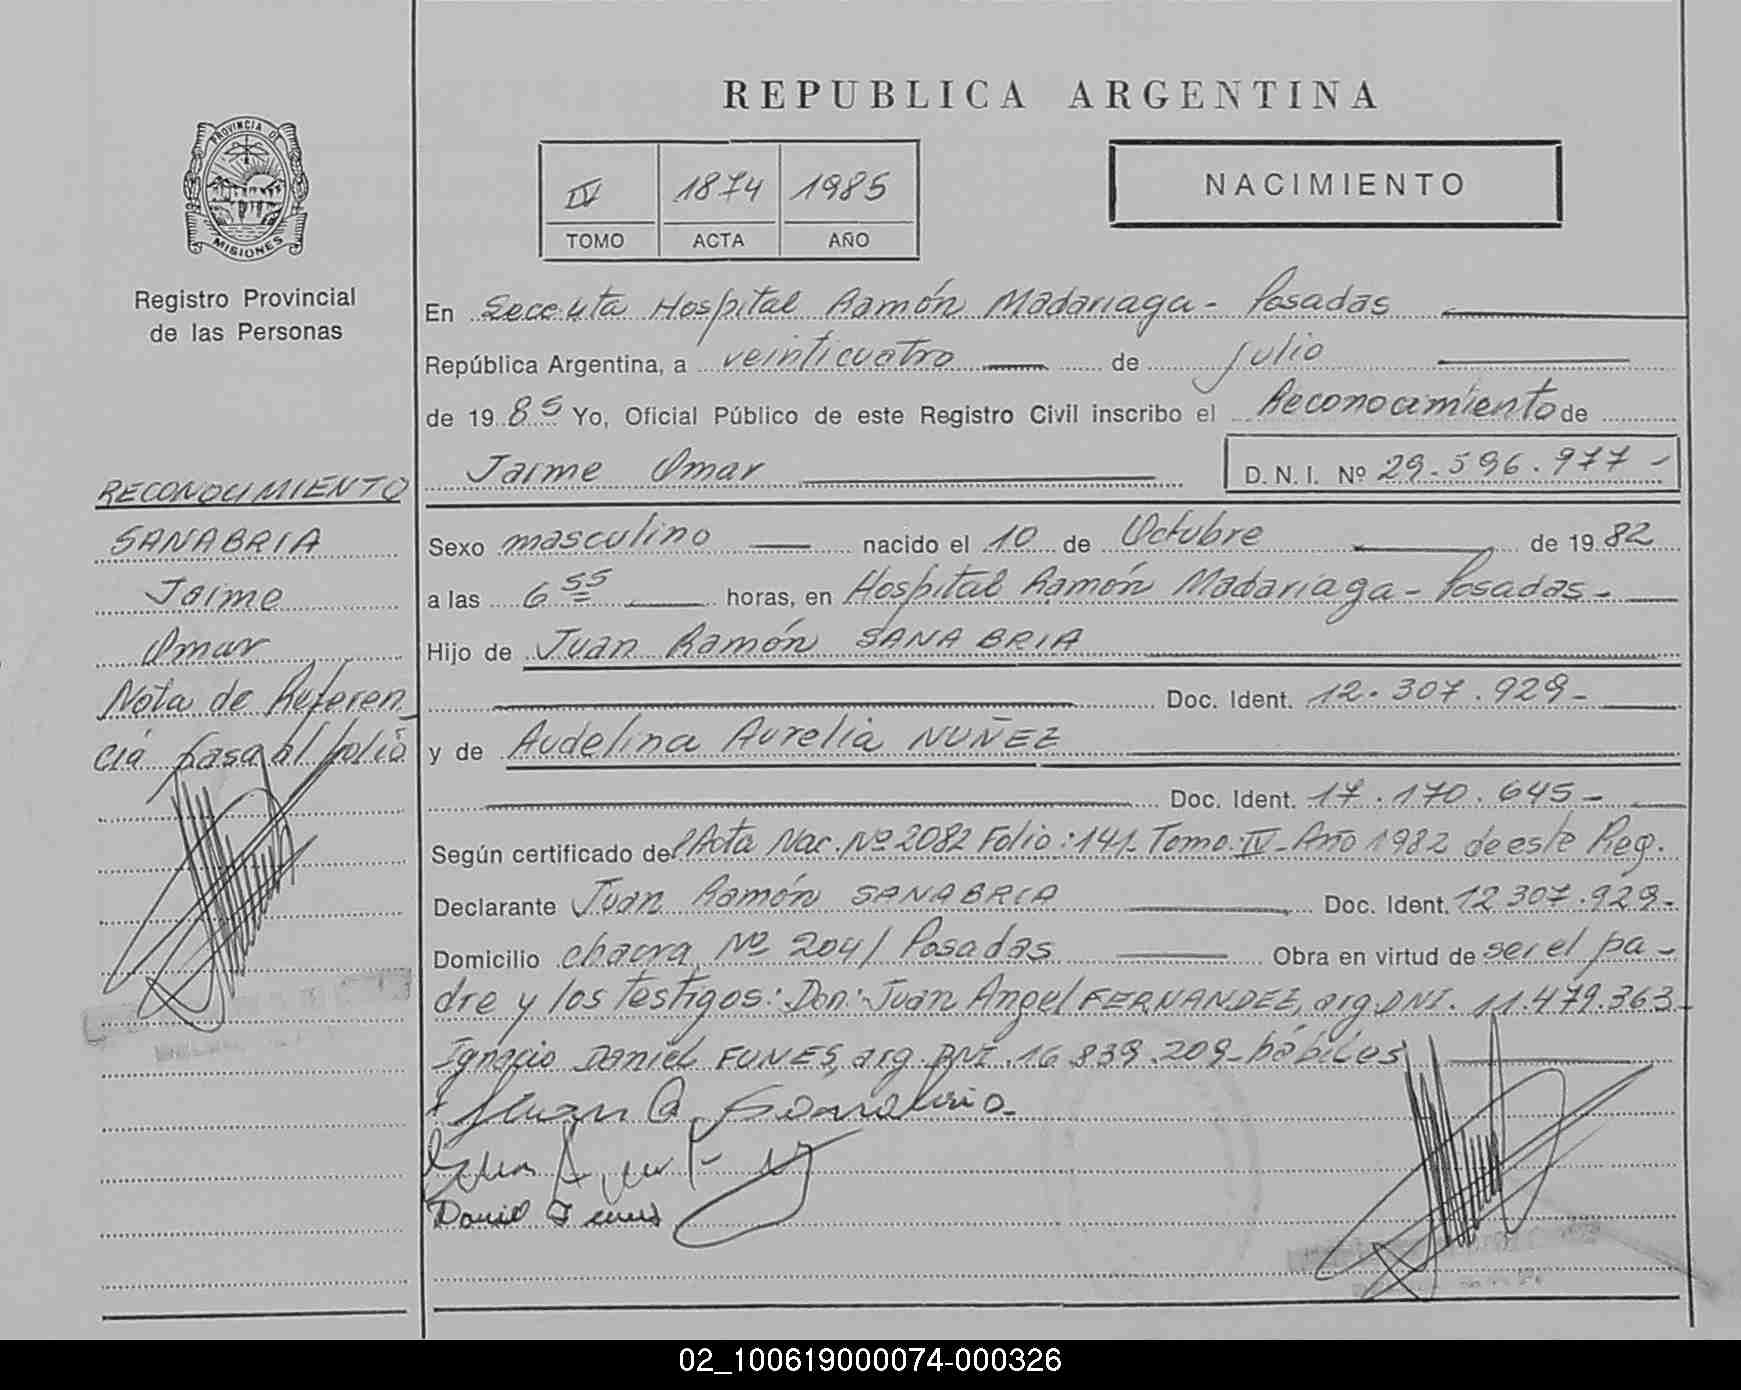 REPUBLICA ARGENTINA
PROVINCIA DE
MISIONES
Registro Provincial
de las Personas
IV 1874 1985
TOMO ACTA AÑO
NACIMIENTO
En Seccuta Hospital Ramón Madariaga - Posadas
República Argentina, a veinticuatro de julio
de 1985 Yo, Oficial Público de este Registro Civil inscribo el Reconocimiento de
Jaime Omar D.N.I. Nº 29.596.977-
Sexo masculino nacido el 10 de Octubre de 1982
a las 6 55 horas, en Hospital Ramón Madariaga - Posadas -
Hijo de Juan Ramón SANABRIA
Doc. Ident. 12.307.929-
y de Audelina Aurelia NUÑEZ
Doc. Ident. 17.170.645-
Según certificado del Acta Nac. Nº 2082 Folio: 141 Tomo: IV - Año 1982 de este Reg.
Declarante Juan Ramón SANABRIA Doc. Ident. 12 307.929-
Domicilio chacra Nº 204/ Posadas Obra en virtud de ser el pa-
dre y los testigos: Don: Juan Angel FERNANDEZ, arg. DNI. 11.479.363-
Ignacio Daniel FUNES, arg. DNI. 16.839.209- hábiles
Daniel Funes
RECONOCIMIENTO
SANABRIA
Jaime
Omar
Nota de Referen-
cia pasa al folio
02_100619000074-000326